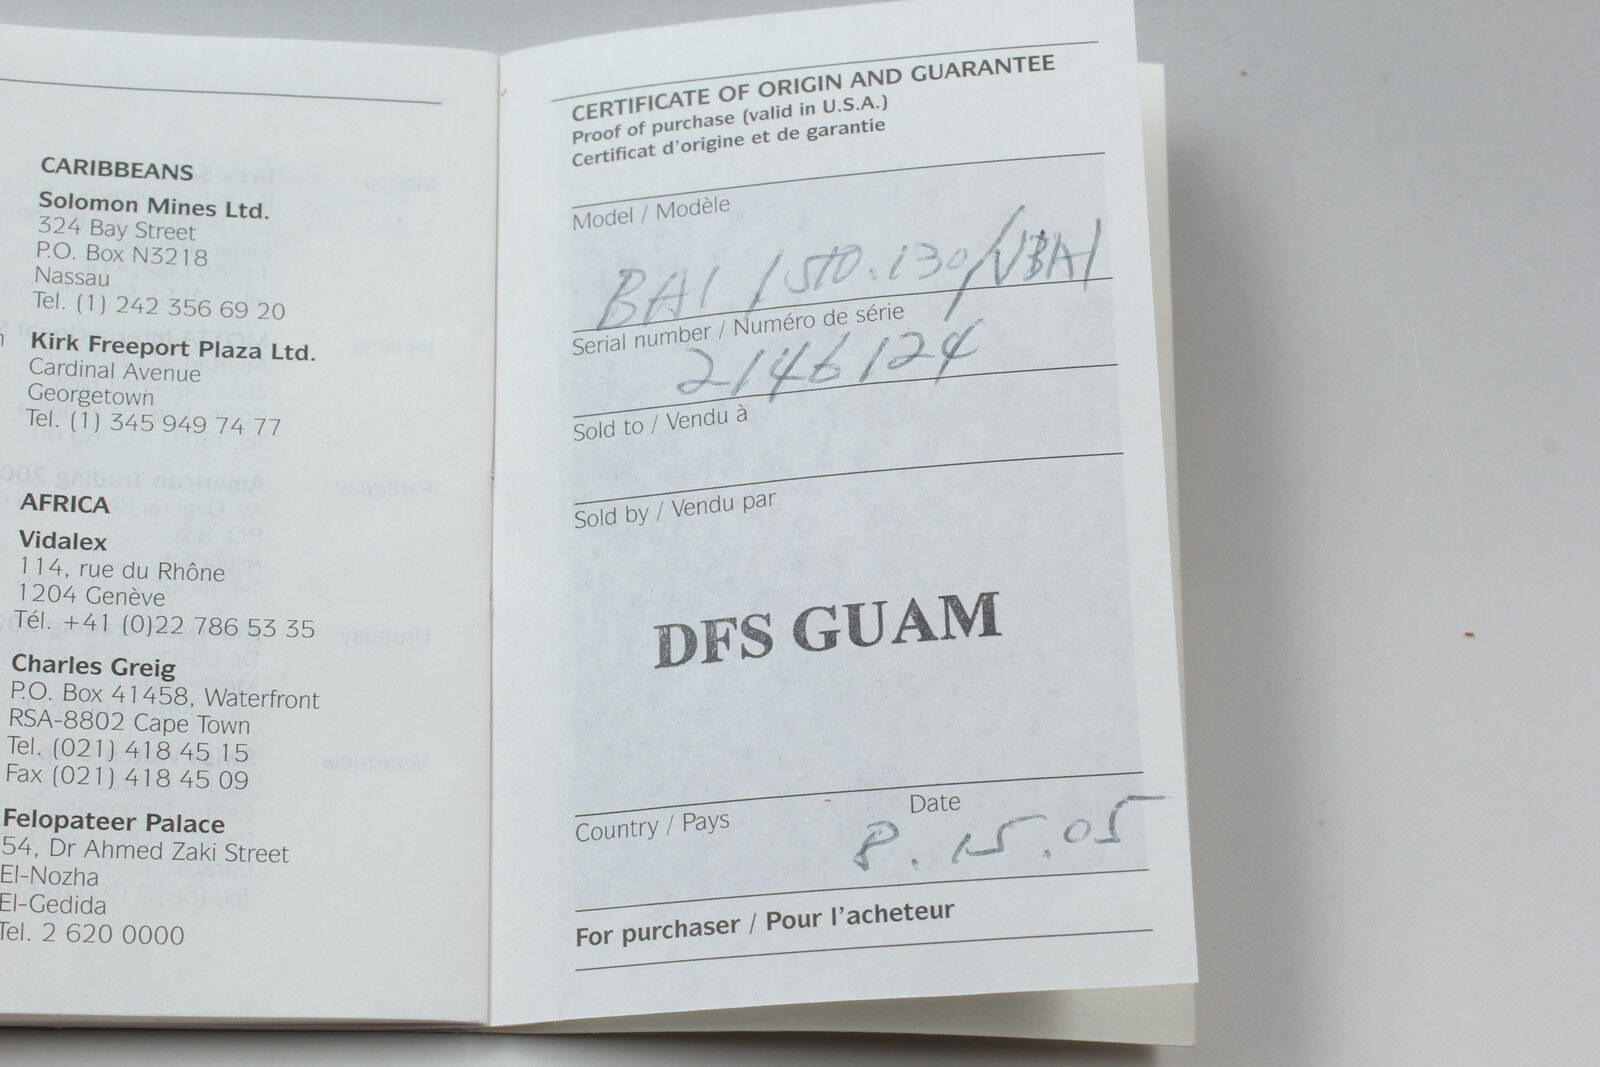 CARIBBEANS
Solomon Mines Ltd.
324 Bay Street
P.O. Box N3218
Nassau
Tel. (1) 242 356 69 20
Kirk Freeport Plaza Ltd.
Cardinal Avenue
Georgetown
Tel. (1) 345 949 74 77
AFRICA
Vidalex
114, rue du Rhône
1204 Genève
Tél. +41 (0)22 786 53 35
Charles Greig
P.O. Box 41458, Waterfront
RSA-8802 Cape Town
Tel. (021) 418 45 15
Fax (021) 418 45 09
Felopateer Palace
54, Dr Ahmed Zaki Street
El-Nozha
El-Gedida
Tel. 2 620 0000
CERTIFICATE OF ORIGIN AND GUARANTEE
Proof of purchase (valid in U.S.A.)
Certificat d'origine et de garantie
Model / Modèle
BA1 / STD.130/VBA1
Serial number / Numéro de série
2146124
Sold to / Vendu à
Sold by / Vendu par
DFS GUAM
Country / Pays
Date
8.15.05
For purchaser / Pour l'acheteur